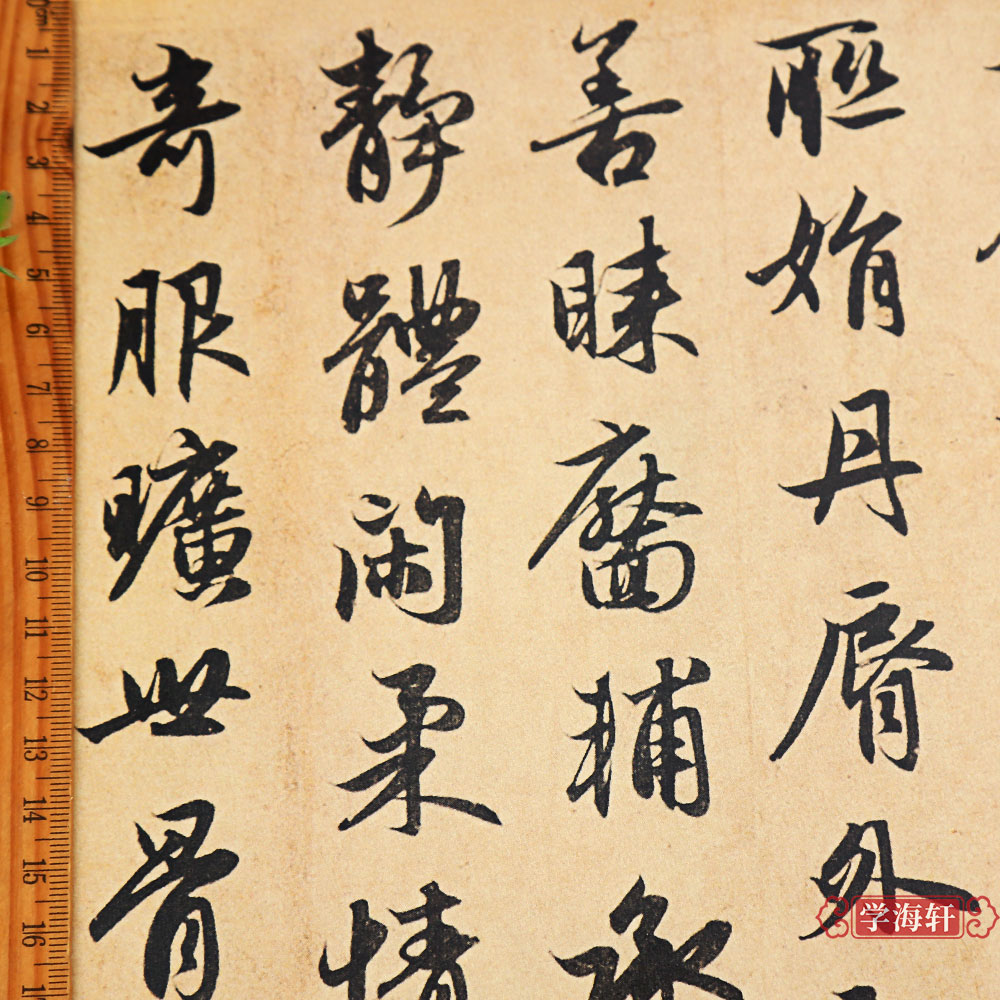 聯娟丹脣外
善睞靨輔承
靜體閑柔情
奇服曠世骨
0cm 1 2 3 4 5 6 7 8 9 10 11 12 13 14 15 16
学海轩